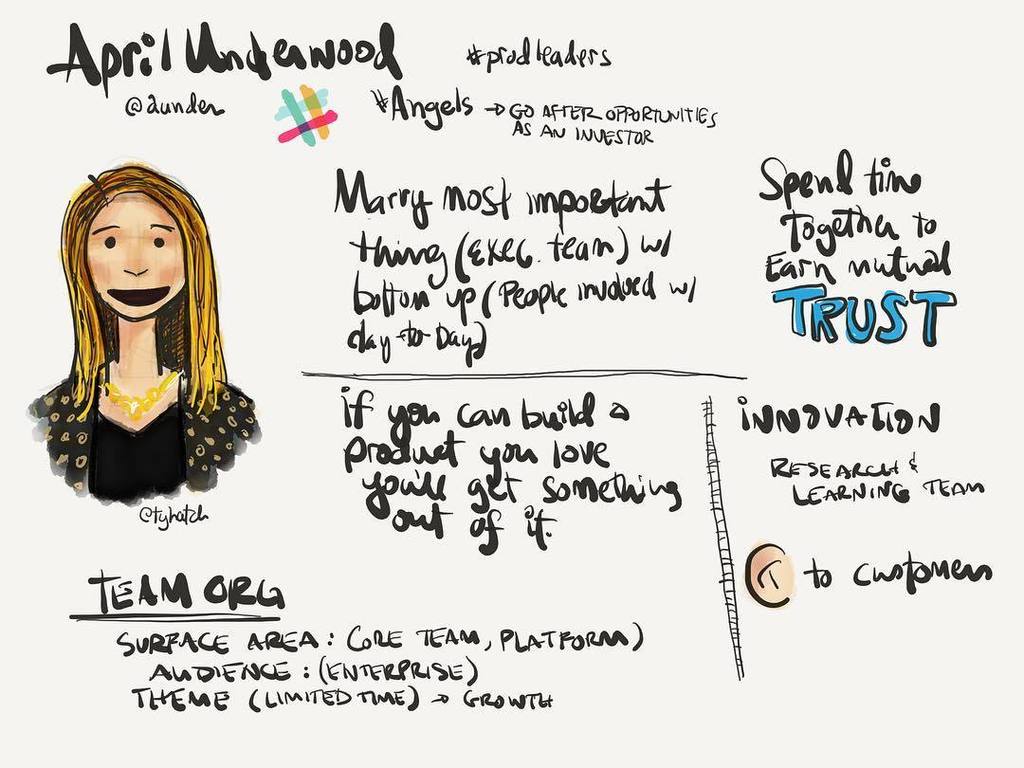 April Underwood
#prodleaders
@aunder
#Angels → GO AFTER OPPORTUNITIES
AS AN INVESTOR
Marry most important
thing (exec. team) w/
bottom up (People involved w/
day-to-day)
Spend time
Together to
Earn mutual
TRUST
if you can build a
product you love
you'll get something
out of it.
iNNOVATION
RESEARCH &
LEARNING TEAM
to customers
@tyhatch
TEAM ORG
SURFACE AREA: (CORE TEAM, PLATFORM)
AUDIENCE: (ENTERPRISE)
THEME (LIMITED TIME) → GROWTH